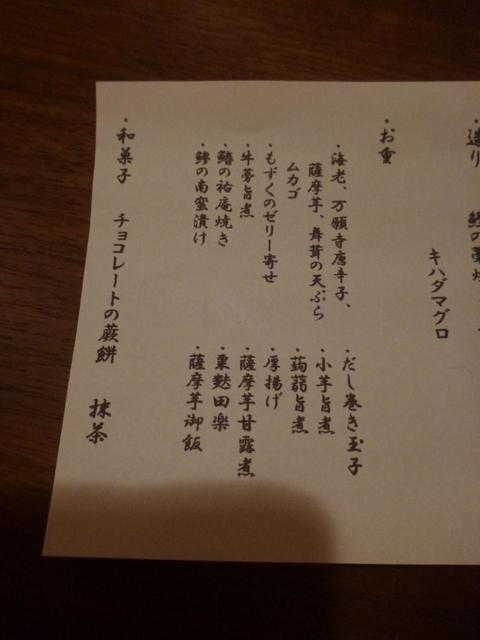 ・造り
キハダマグロ
・お重
・海老、万願寺唐辛子、
薩摩芋、舞茸の天ぷら
ムカゴ
・もずくのゼリー寄せ
・牛蒡旨煮
・鰆の祐庵焼き
・鯵の南蛮漬け
・だし巻き玉子
・小芋旨煮
・蒟蒻旨煮
・厚揚げ
・薩摩芋甘露煮
・粟麩田楽
・薩摩芋御飯
・和菓子 チョコレートの蕨餅 抹茶